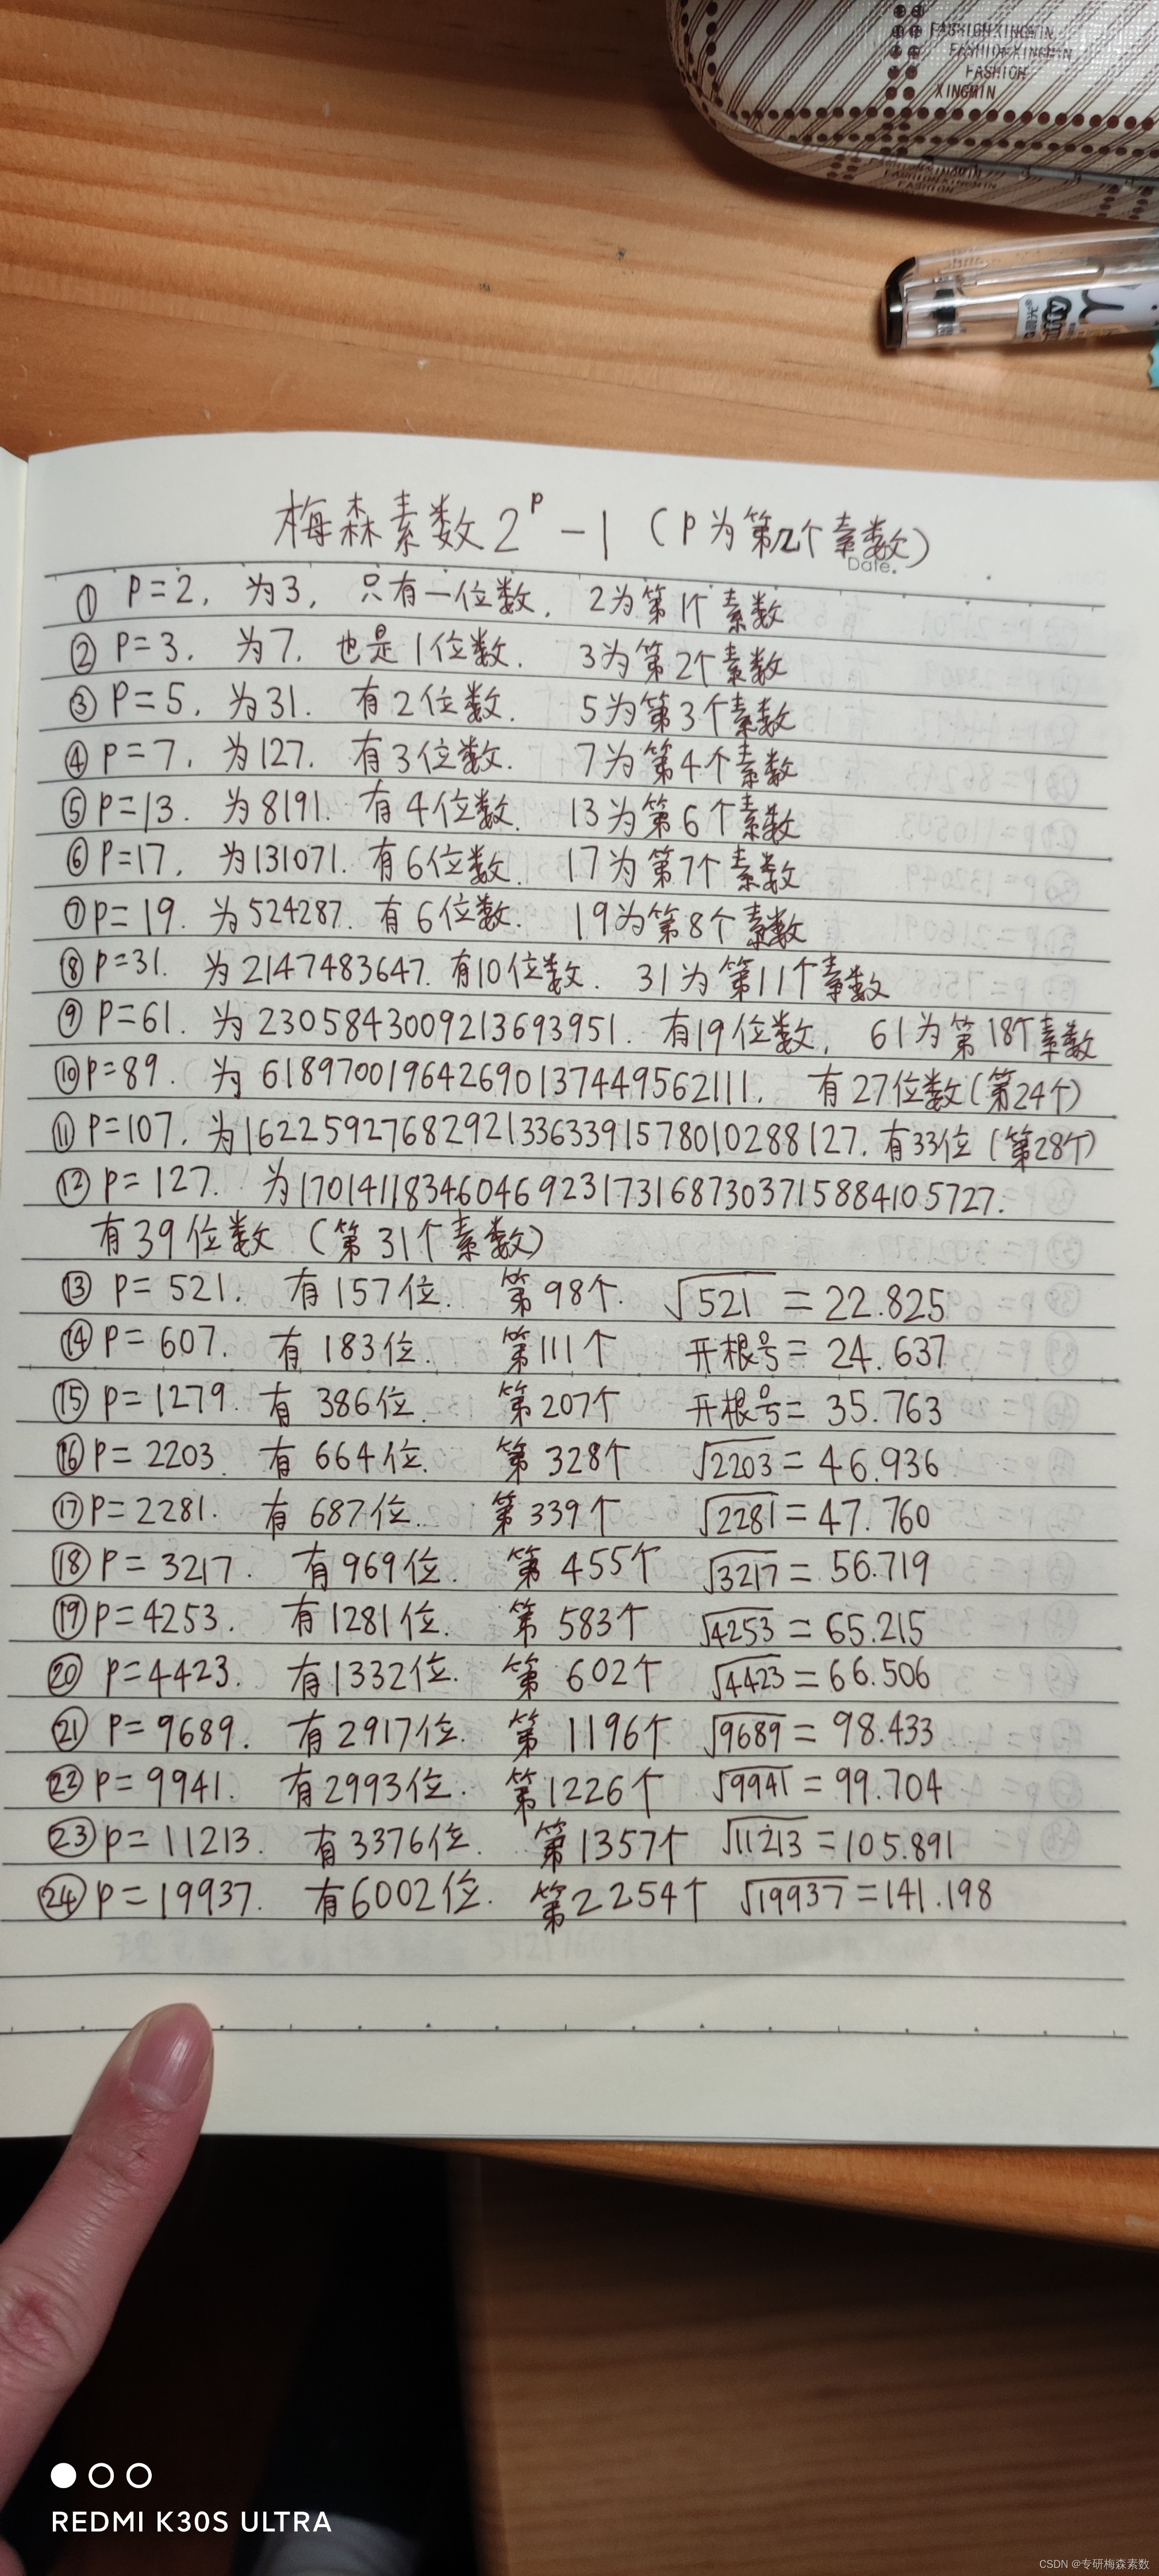 FASHION XINGMIN
FASHION XINGMIN
FASHION
XINGMIN
梅森素数 2ᵖ-1 (P为第几个素数)
Date.
① P=2, 为3, 只有一位数, 2为第1个素数
② P=3, 为7, 也是1位数. 3为第2个素数
③ P=5, 为31. 有2位数. 5为第3个素数
④ P=7, 为127. 有3位数. 7为第4个素数
⑤ P=13. 为8191. 有4位数. 13为第6个素数
⑥ P=17, 为131071. 有6位数. 17为第7个素数
⑦ P=19. 为524287. 有6位数. 19为第8个素数
⑧ P=31. 为2147483647. 有10位数. 31为第11个素数
⑨ P=61. 为2305843009213693951. 有19位数, 61为第18个素数
⑩ P=89. 为618970019642690137449562111. 有27位数(第24个)
⑪ P=107, 为162259276829213363391578010288127. 有33位(第28个)
⑫ P=127. 为170141183460469231731687303715884105727.
有39位数 (第31个素数)
⑬ P=521. 有157位. 第98个. √521=22.825
⑭ P=607. 有183位. 第111个 开根号=24.637
⑮ P=1279. 有386位. 第207个 开根号=35.763
⑯ P=2203. 有664位. 第328个 √2203=46.936
⑰ P=2281. 有687位. 第339个 √2281=47.760
⑱ P=3217. 有969位. 第455个 √3217=56.719
⑲ P=4253. 有1281位. 第583个 √4253=65.215
⑳ P=4423. 有1332位. 第602个 √4423=66.506
㉑ P=9689. 有2917位. 第1196个 √9689=98.433
㉒ P=9941. 有2993位. 第1226个 √9941=99.704
㉓ P=11213. 有3376位. 第1357个 √11213=105.891
㉔ P=19937. 有6002位. 第2254个 √19937=141.198
REDMI K30S ULTRA
CSDN @专研梅森素数